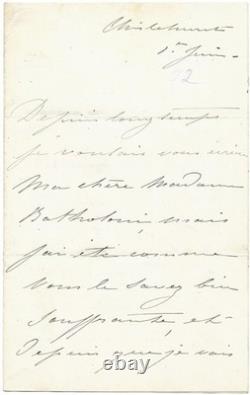 Chislehurst
1er Juin
72
Depuis longtemps
je voulais vous écrire
Ma chère Madame
Batholoni, mais
j'ai été comme
vous le savez bien
souffrante, et
Depuis que je vais
© ebay.com